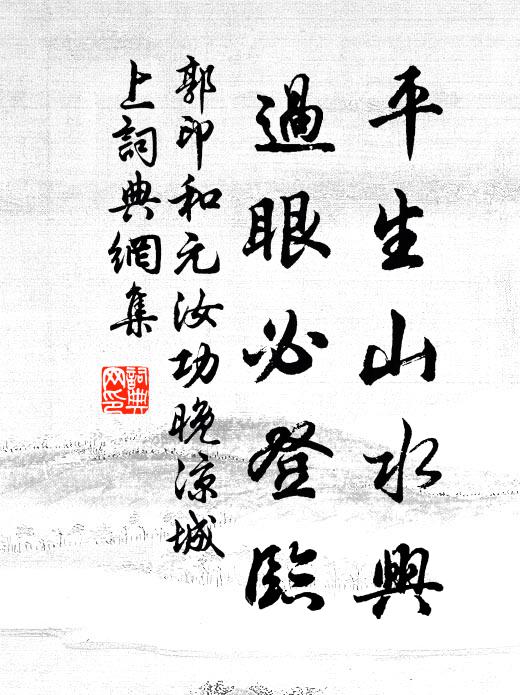 平生山水興
過眼必登臨
郭印和元汝功晚涼城
上詞典網集
詞典網印